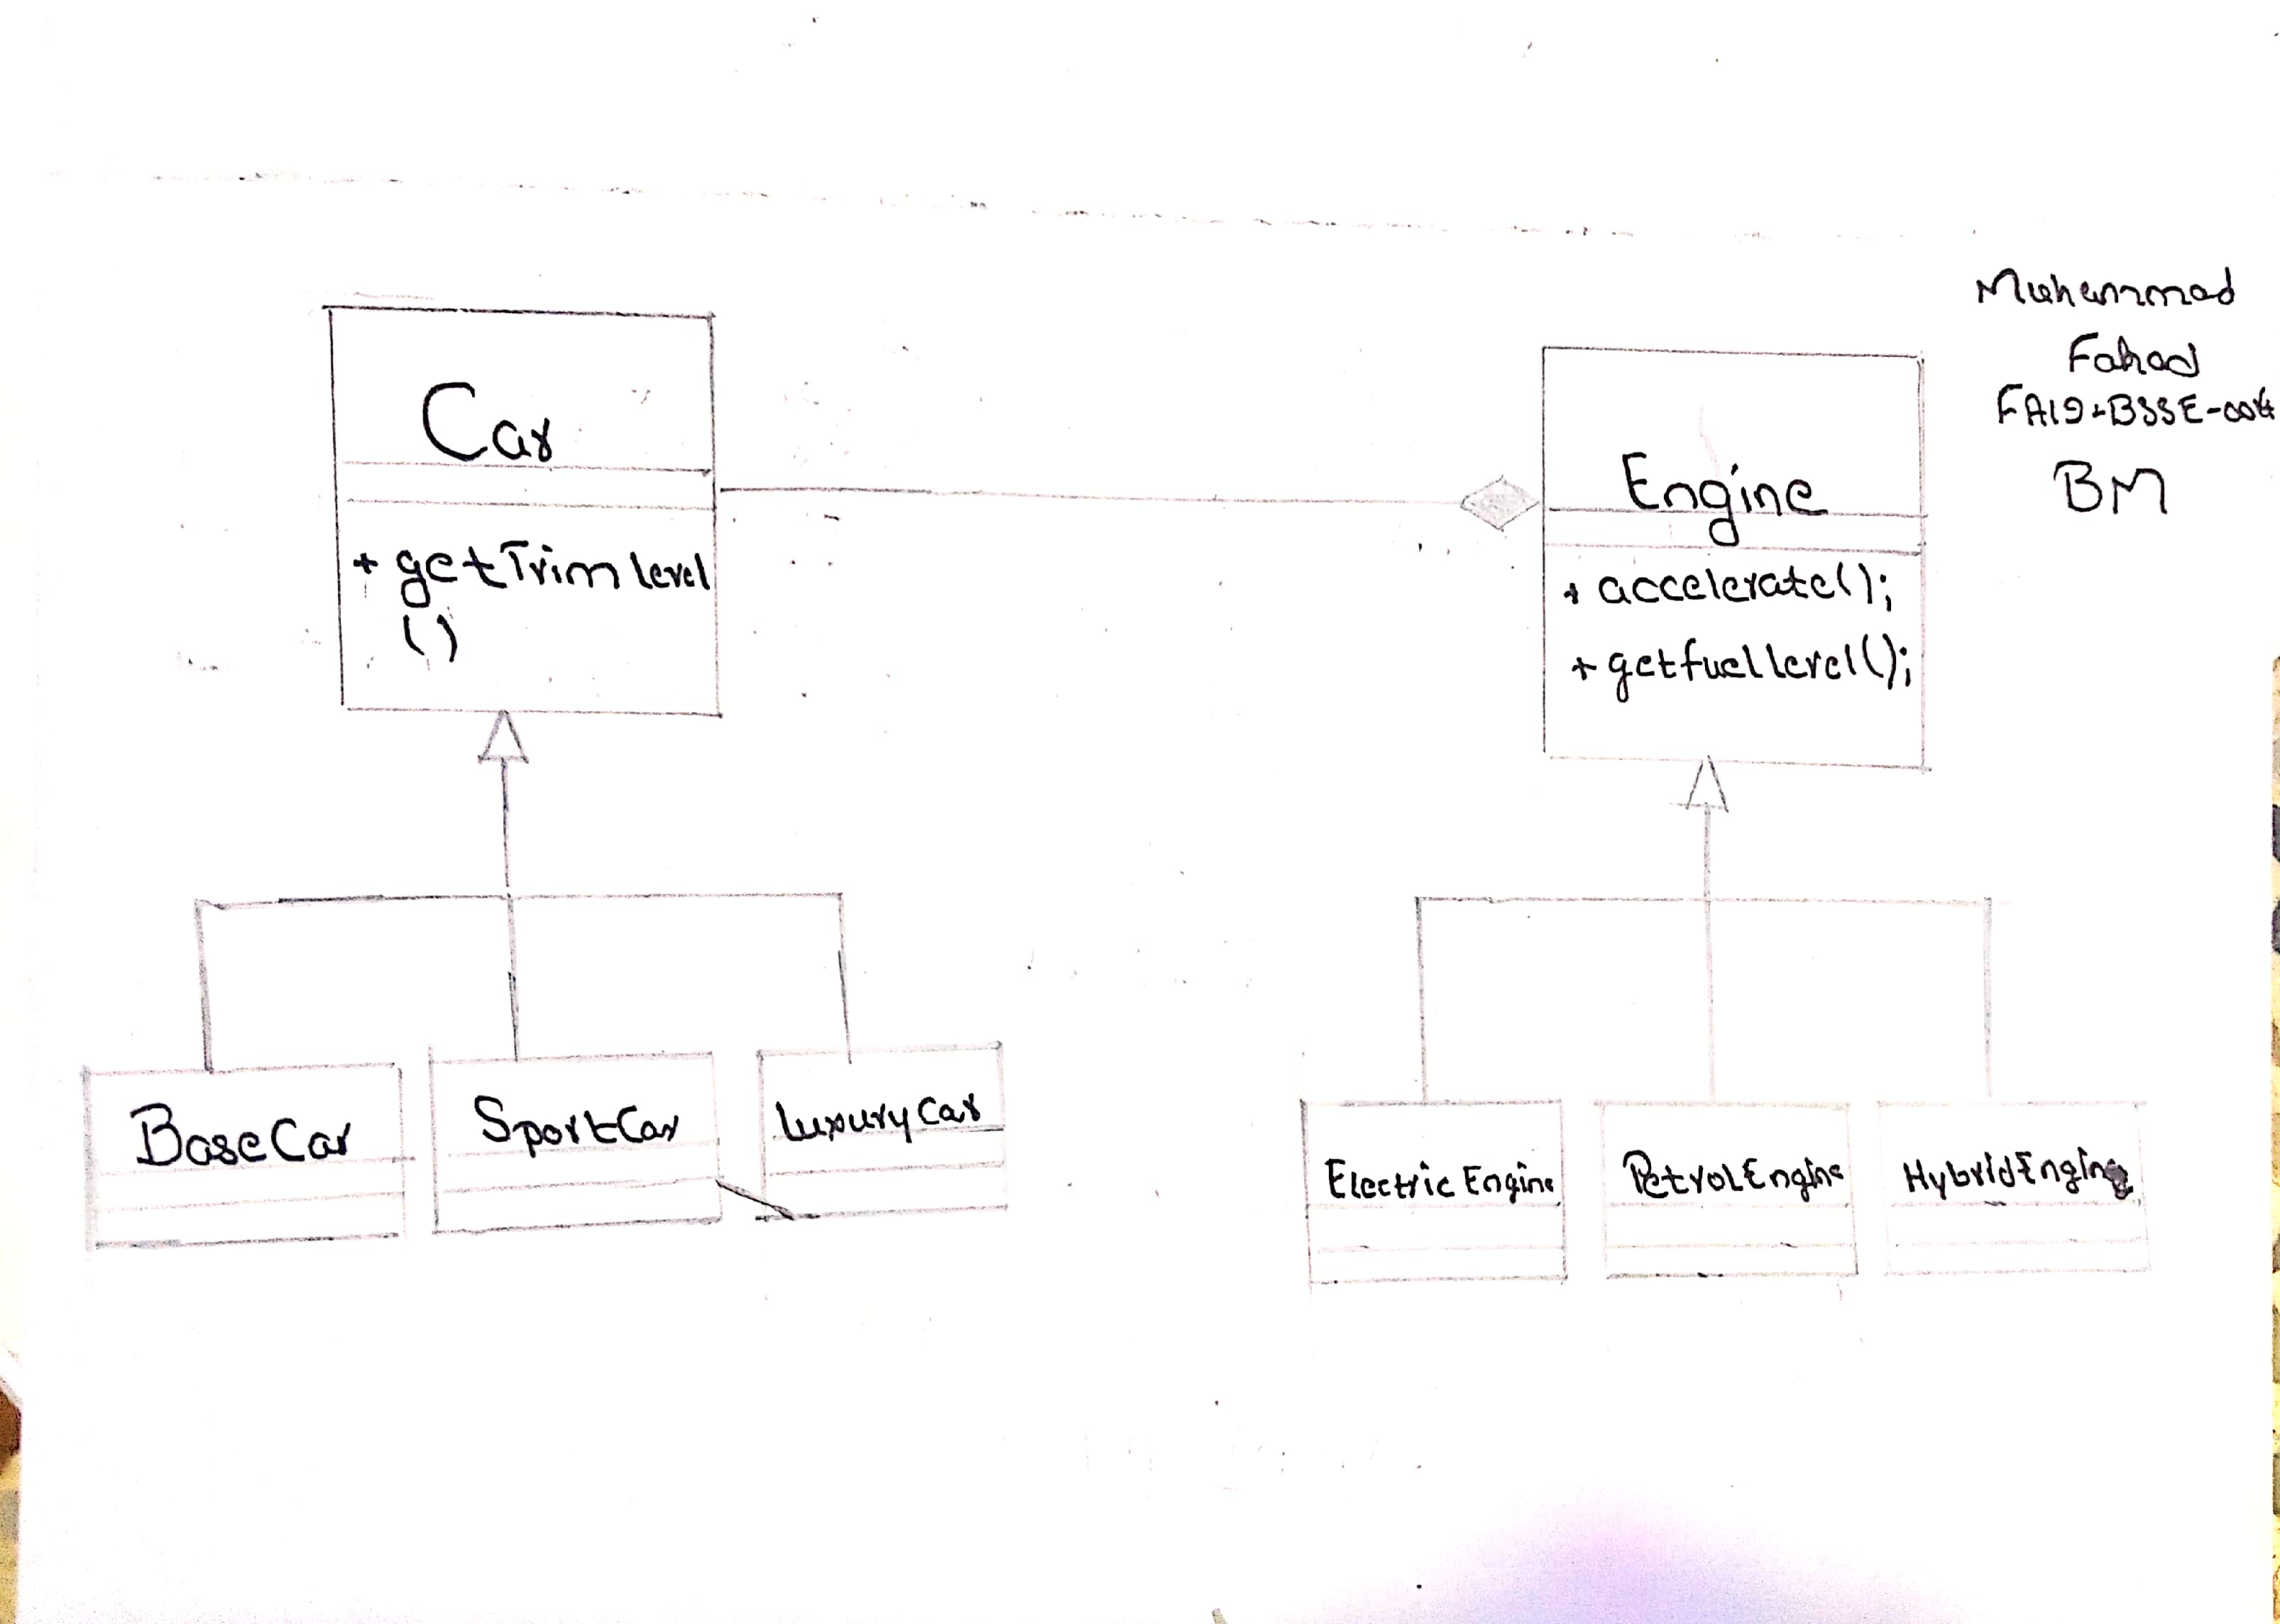 Muhammad
Fahad
FA19-BSSE-004
BM
Car
+ getTrim level
()
Engine
+ accelerate();
+ getfuellevel();
BaseCar
SportCar
LuxuryCar
Electric Engine
PetrolEngine
HybridEngine